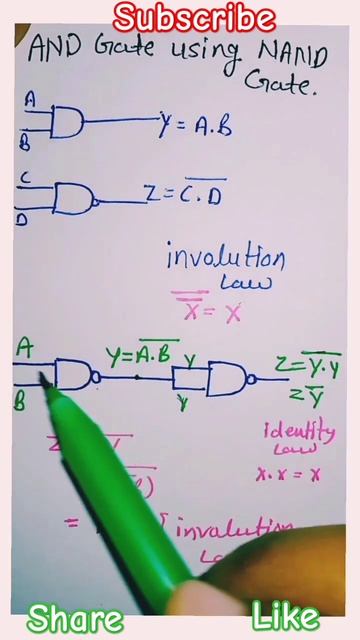 Subscribe
AND Gate using NAND
Gate.
A
B
Y = A.B
C
D
Z = \overline{C.D}
involution
Law
\overline{\overline{X}} = X
A
B
Y = \overline{A.B}
Y
Y
Z = \overline{Y.Y}
= \overline{Y}
identity
Law
X.X = X
Z
=
[involution
Share
Like